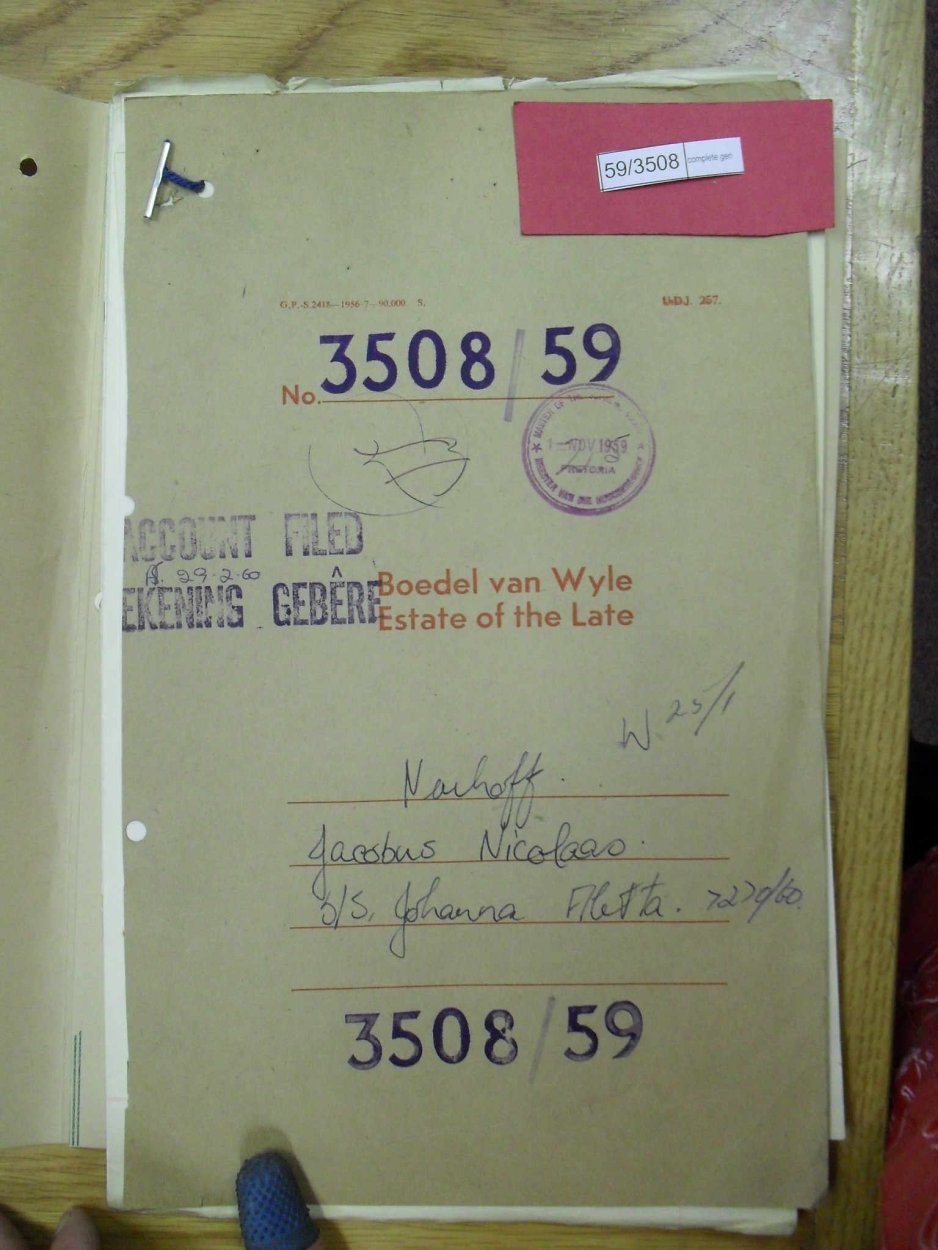 59/3508 complete gen
G.P.-S.2418—1956-7—90,000. S.
U.D.J. 267.
No. 3508/59
MASTER OF THE
1 - NOV 1959
PRETORIA
MEESTER VAN DIE HOOGGEREGSHOF
ACCOUNT FILED
29.2.60
EKENING GEBÊRE
Boedel van Wyle
Estate of the Late
W 25/1
Jacobus Nicolaas.
S/S. Johanna Aletta. 7270/60.
3508/59